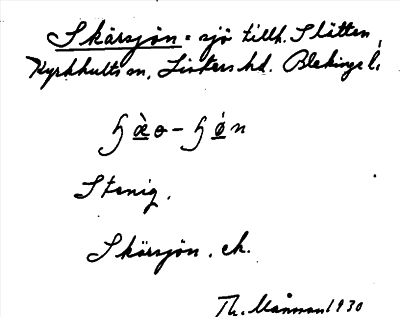 Skärsjön = sjö tillh. Slätten,
Kyrkhults sn, Listers hd. Blekinge l.
Stenig.
Skärsjön. ek.
Th. Månsson 1930